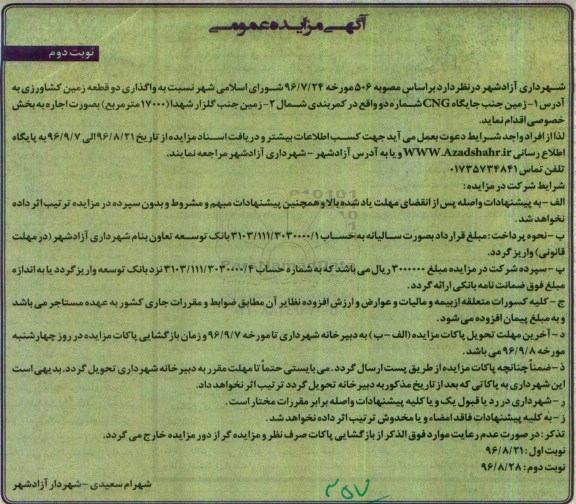 آگهی مزایده عمومی
نوبت دوم
شهرداری آزادشهر درنظر دارد براساس مصوبه ۵۰۶ مورخه ۹۶/۷/۲۴ شورای اسلامی شهر نسبت به واگذاری دو قطعه زمین کشاورزی به
آدرس ۱- زمین جنب جایگاه CNG شماره دو واقع در کمربندی شمال ۲- زمین جنب گلزار شهدا (۱۷۰۰۰ مترمربع) بصورت اجاره به بخش
خصوصی اقدام نماید.
لذا از افراد واجد شرایط دعوت بعمل می آید جهت کسب اطلاعات بیشتر و دریافت اسناد مزایده از تاریخ ۹۶/۸/۲۱ الی ۹۶/۹/۷ به پایگاه
اطلاع رسانی WWW.Azadshahr.ir و یا به آدرس آزادشهر - شهرداری آزادشهر مراجعه نمایند.
تلفن تماس ۰۱۷۳۵۷۳۴۸۴۱
شرایط شرکت در مزایده:
الف - به پیشنهادات واصله پس از انقضای مهلت یاد شده بالا و همچنین پیشنهادات مبهم و مشروط و بدون سپرده در مزایده ترتیب اثر داده
نخواهد شد.
ب - نحوه پرداخت: مبلغ قرارداد بصورت سالیانه به حساب ۳۱۰۳/۱۱۱/۳۰۳۰۰۰۰/۱ بانک توسعه تعاون بنام شهرداری آزادشهر (در مهلت
قانونی) واریز گردد.
پ - سپرده شرکت در مزایده مبلغ ۳۰۰۰۰۰۰ ریال می باشد که به شماره حساب ۳۱۰۳/۱۱۱/۳۰۳۰۰۰۰/۴ نزد بانک توسعه واریز گردد یا به اندازه
مبلغ فوق ضمانت نامه بانکی ارائه گردد.
ج - کلیه کسورات متعلقه از بیمه و مالیات و عوارض و ارزش افزوده نظایر آن مطابق ضوابط و مقررات جاری کشور به عهده مستاجر می باشد
و به مبلغ پیمان افزوده می شود.
د - آخرین مهلت تحویل پاکات مزایده (الف - ب) به دبیرخانه شهرداری تا مورخه ۹۶/۹/۷ و زمان بازگشایی پاکات مزایده در روز چهارشنبه
مورخه ۹۶/۹/۸ می باشد.
ذ - ضمناً چنانچه پاکات مزایده از طریق پست ارسال گردد، می بایستی حتماً تا مهلت مقرر به دبیرخانه شهرداری تحویل گردد. بدیهی است
این شهرداری به پاکاتی که بعد از تاریخ مذکور به دبیرخانه تحویل گردد ترتیب اثر نخواهد داد.
ر - شهرداری در رد یا قبول یک و یا کلیه پیشنهادات واصله برابر مقررات مختار است.
ز - به کلیه پیشنهادات فاقد امضاء و یا مخدوش ترتیب اثر داده نخواهد شد.
تذکر: در صورت عدم رعایت موارد فوق الذکر از بازگشایی پاکات صرف نظر و مزایده گر از دور مزایده خارج می گردد.
نوبت اول: ۹۶/۸/۲۱
نوبت دوم: ۹۶/۸/۲۸
شهرام سعیدی - شهردار آزادشهر